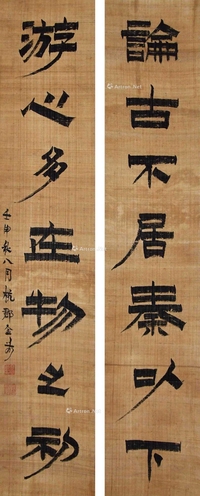 論古不居秦以下
游心多在物之初
壬申秋八月杭郡金